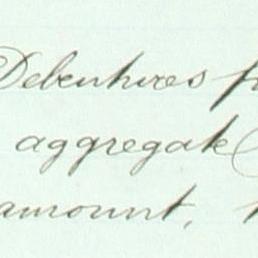 Debentures
aggregate
amount,